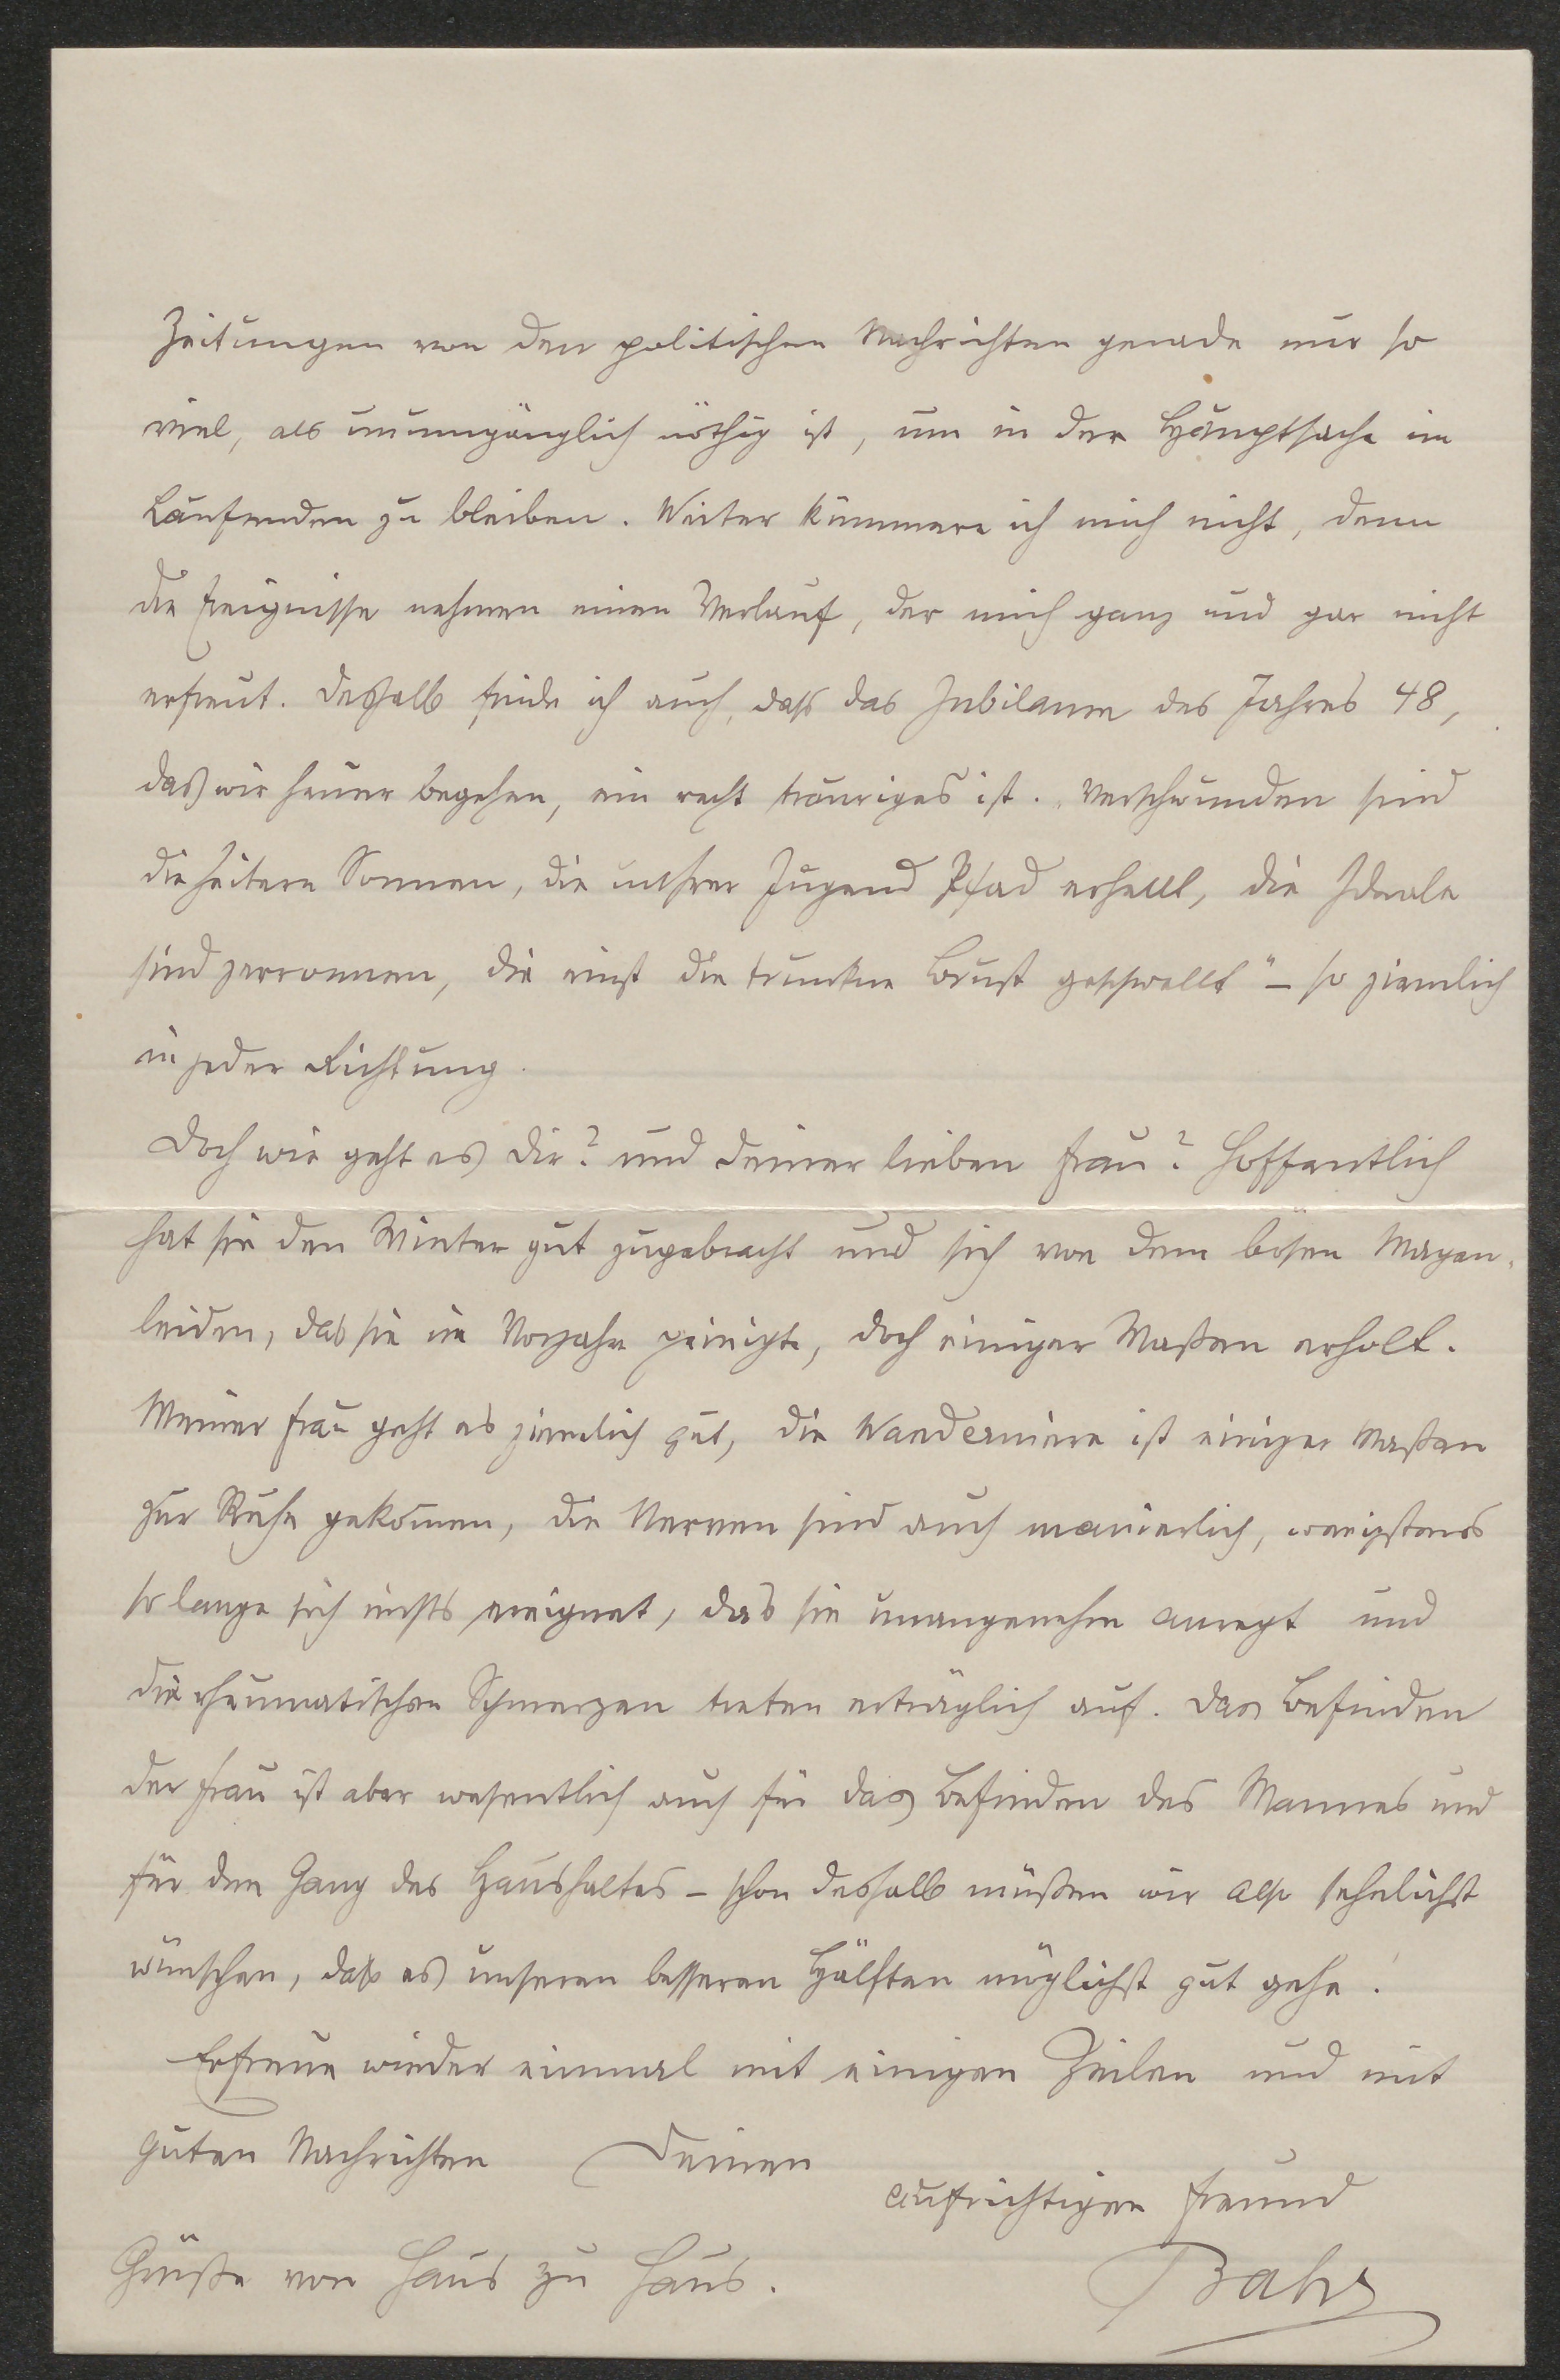 Zeitungen von den politischen Nachrichten gerade nur so
viel, als unumgänglich nöthig ist, um in der Hauptsache im
Laufenden zu bleiben. Weiter kümmere ich mich nicht, denn
die Ereignisse nehmen einen Verlauf, der mich ganz und gar nicht
erfreut. Deßhalb finde ich auch, daß das Jubilaum des Jahres 48,
das wir heuer begehen, ein recht trauriges ist. „Verschwunden sind
die heitern Sonnen, die unsrer Jugend Pfad erhellt, die Ideale
sind zerronnen, die einst die trunkne Brust geschwellt" – so ziemlich
in jeder Richtung.
Doch wie geht es Dir? und Deiner lieben Frau? Hoffentlich
hat sie den Winter gut zugebracht und sich von dem bösen Magen-
leiden, das sie im Vorjahre peinigte, doch einiger Maßen erholt.
Meiner Frau geht es ziemlich gut, die Wanderniere ist einiger Maßen
zur Ruhe gekom̄en, die Nerven sind auch manierlich, wenigstens
so lange sich nichts ereignet, das sie unangenehm anregt und
die rheumatischen Schmerzen treten erträglich auf. Das Befinden
der Frau ist aber wesentlich auch für das Befinden des Mannes und
für den Gang des Haushaltes – schon deshalb müßen wir also sehnlichst
wünschen, daß es unseren besseren Hälften möglichst gut gehe!
Erfreue wieder einmal mit einigen Zeilen und mit
guten Nachrichten Deinen
aufrichtigen Freund
Grüße von Haus zu Haus.
Bahr